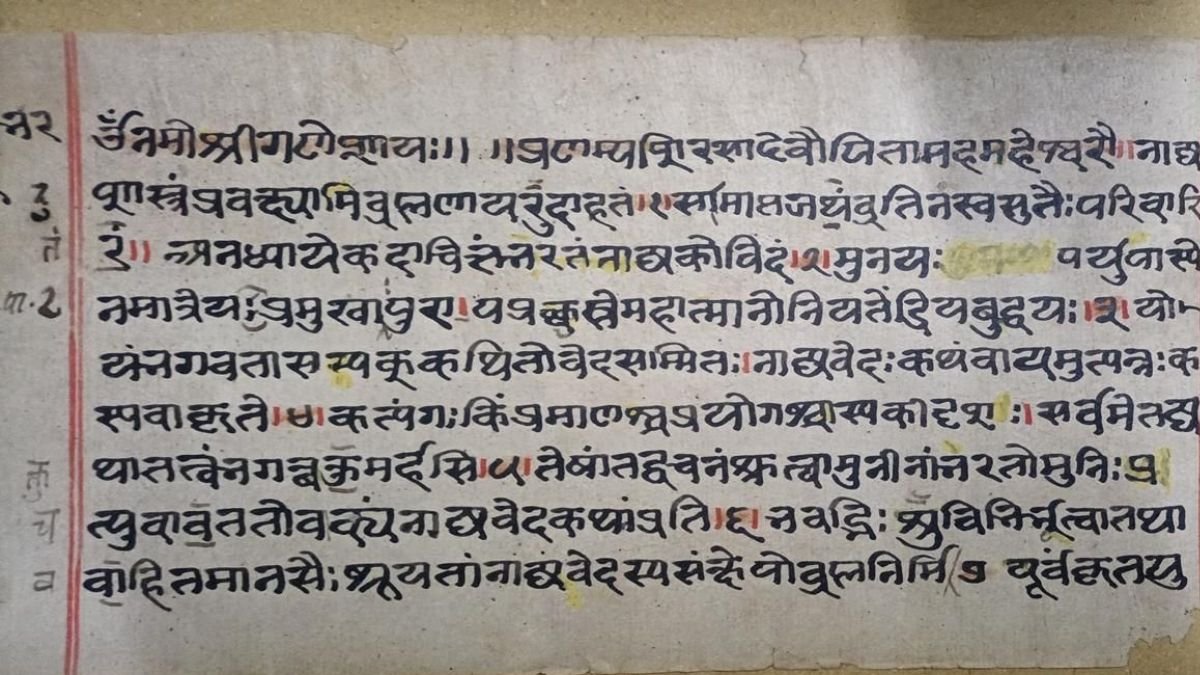 ॐनमोश्रीगणेशायः॥ ॥प्रणम्यशिरसादेवौपितामहमहेश्वरौ॥नाट्य
शास्त्रंप्रवक्ष्यामिब्रह्मणायदुदाहृतं।१।समाप्तजप्यंव्रतिनंस्वसुतैःपरिवारि
तं॥अनध्यायेकदाचित्तंभरतंनाट्यकोविदं।२।मुनयः पर्युपास्यै
नमात्रेयःप्रमुखापुरा।पप्रछुस्तेमहात्मानोनियतेंद्रियबुद्धयः।३।यो
यंभगवतासम्यक्कथितोवेदसम्मितः।नाट्यवेदःकथंवायमुत्पन्नःक
स्यवाकृते।४।कत्यंगःकिंप्रमाणश्चप्रयोगश्चास्यकीदृशः।सर्वमेतद्य
थातत्वंभगवन्वक्तुमर्हसि।५।तेषांतद्वचनंश्रुत्वामुनीनांभरतोमुनिः।प्र
त्युवाचततोवाक्यंनाट्यवेदकथांप्रति।६।भवद्भिःशुचिभिर्भूत्वातथा
वहितमानसैः।श्रूयतांनाट्यवेदस्यसंक्षेपोब्रह्मनिर्मि ७ पूर्वंकृतयु